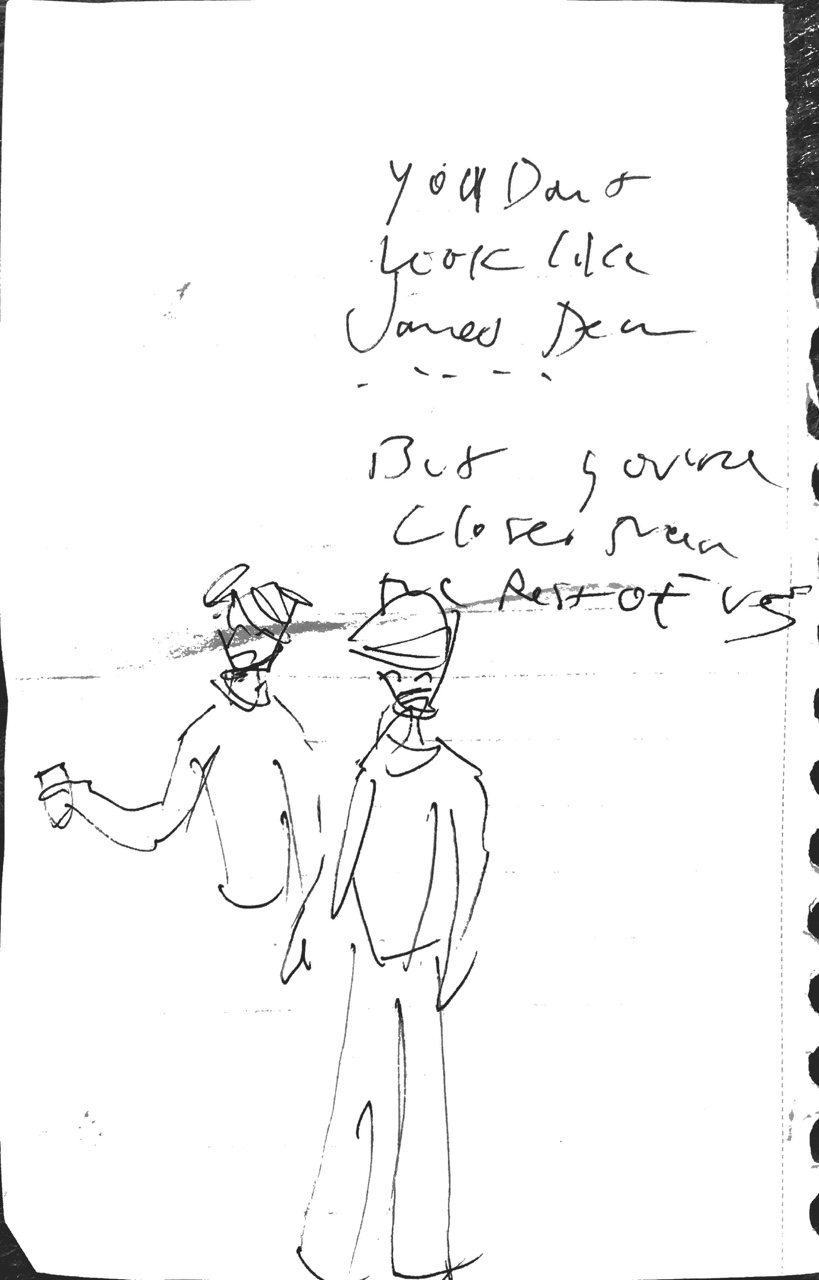 You Dont
Look like
James Dean
But you're
Closer than
the Rest of us